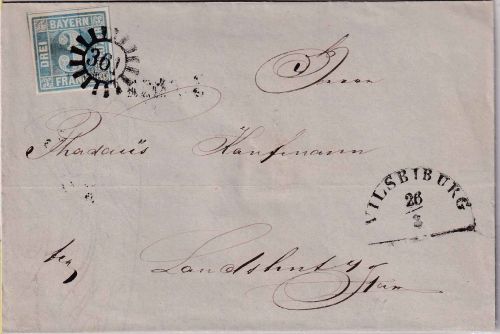 BAYERN
DREI
FRANCO
3
361
Herrn
Thadäus Kaufmann
VILSBIBURG
26
3
Landshut